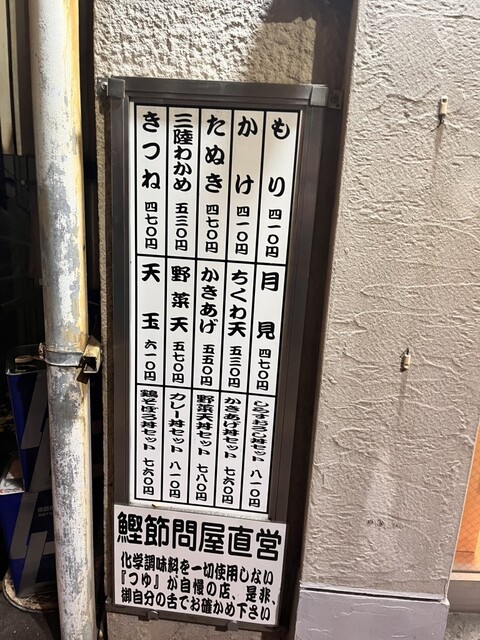 もり 四一〇円
かけ 四一〇円
たぬき 四七〇円
三陸わかめ 五三〇円
きつね 四七〇円
月見 四七〇円
ちくわ天 五三〇円
かきあげ 五五〇円
野菜天 五七〇円
天玉 六一〇円
しらすおろし丼セット 八一〇円
かきあげ丼セット 七六〇円
野菜天丼セット 七八〇円
カレー丼セット 八一〇円
鶏そぼろ丼セット 七六〇円
鰹節問屋直営
化学調味料を一切使用しない
『つゆ』が自慢の店、是非、
御自分の舌でお確かめ下さい